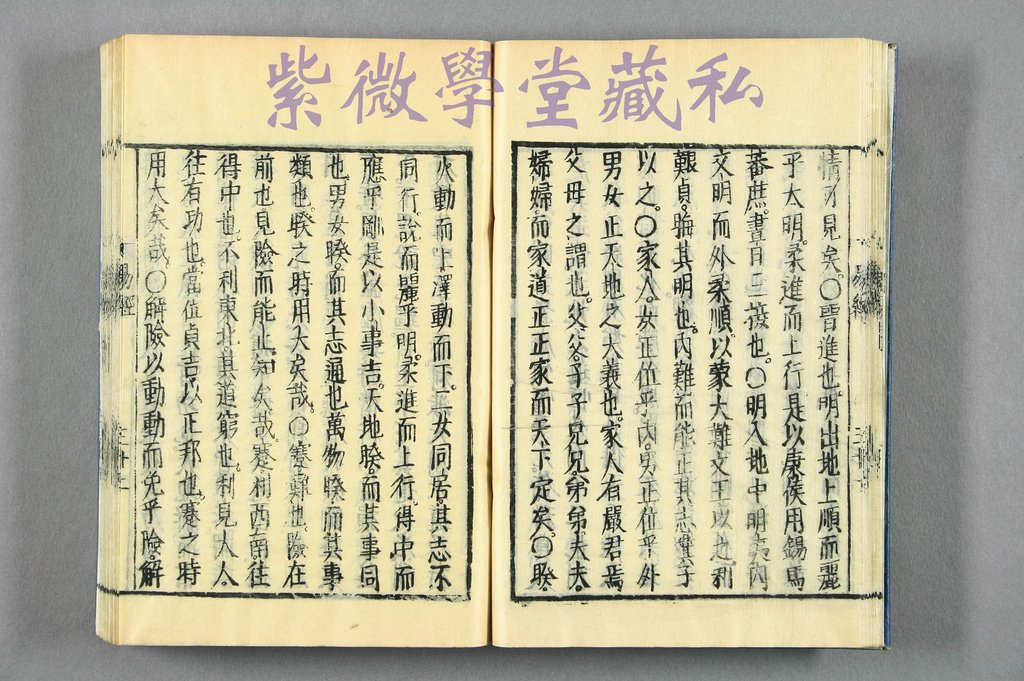 紫微學堂藏私
易經
情可見矣。〇晉進也。明出地上順而麗
乎大明。柔進而上行是以康侯用錫馬
蕃庶。晝日三接也。〇明入地中明夷內
文明而外柔順。以蒙大難文王以之利
艱貞。晦其明也。內難而能正其志箕子
以之。〇家人。女正位乎內。男正位乎外
男女正天地之大義也。家人有嚴君焉
父母之謂也。父父。子子兄兄。弟弟。夫夫。
婦婦而家道正正家而天下。定矣。〇睽。
火動而上澤動而下。二女同居。其志不
同行。說而麗乎明。柔進而上行。得中而
應乎剛。是以小事吉。天地睽。而其事同
也男女睽。而其志通也萬物睽而其事
類也。睽之時用大矣哉。〇蹇難也。險在
前也。見險而能止。知矣哉。蹇利西南。往
得中也。不利東北。其道窮也。利見大人。
往有功也。當位貞吉。以正邦也。蹇之時
用大矣哉。〇解險以動動而免乎險。解
易經